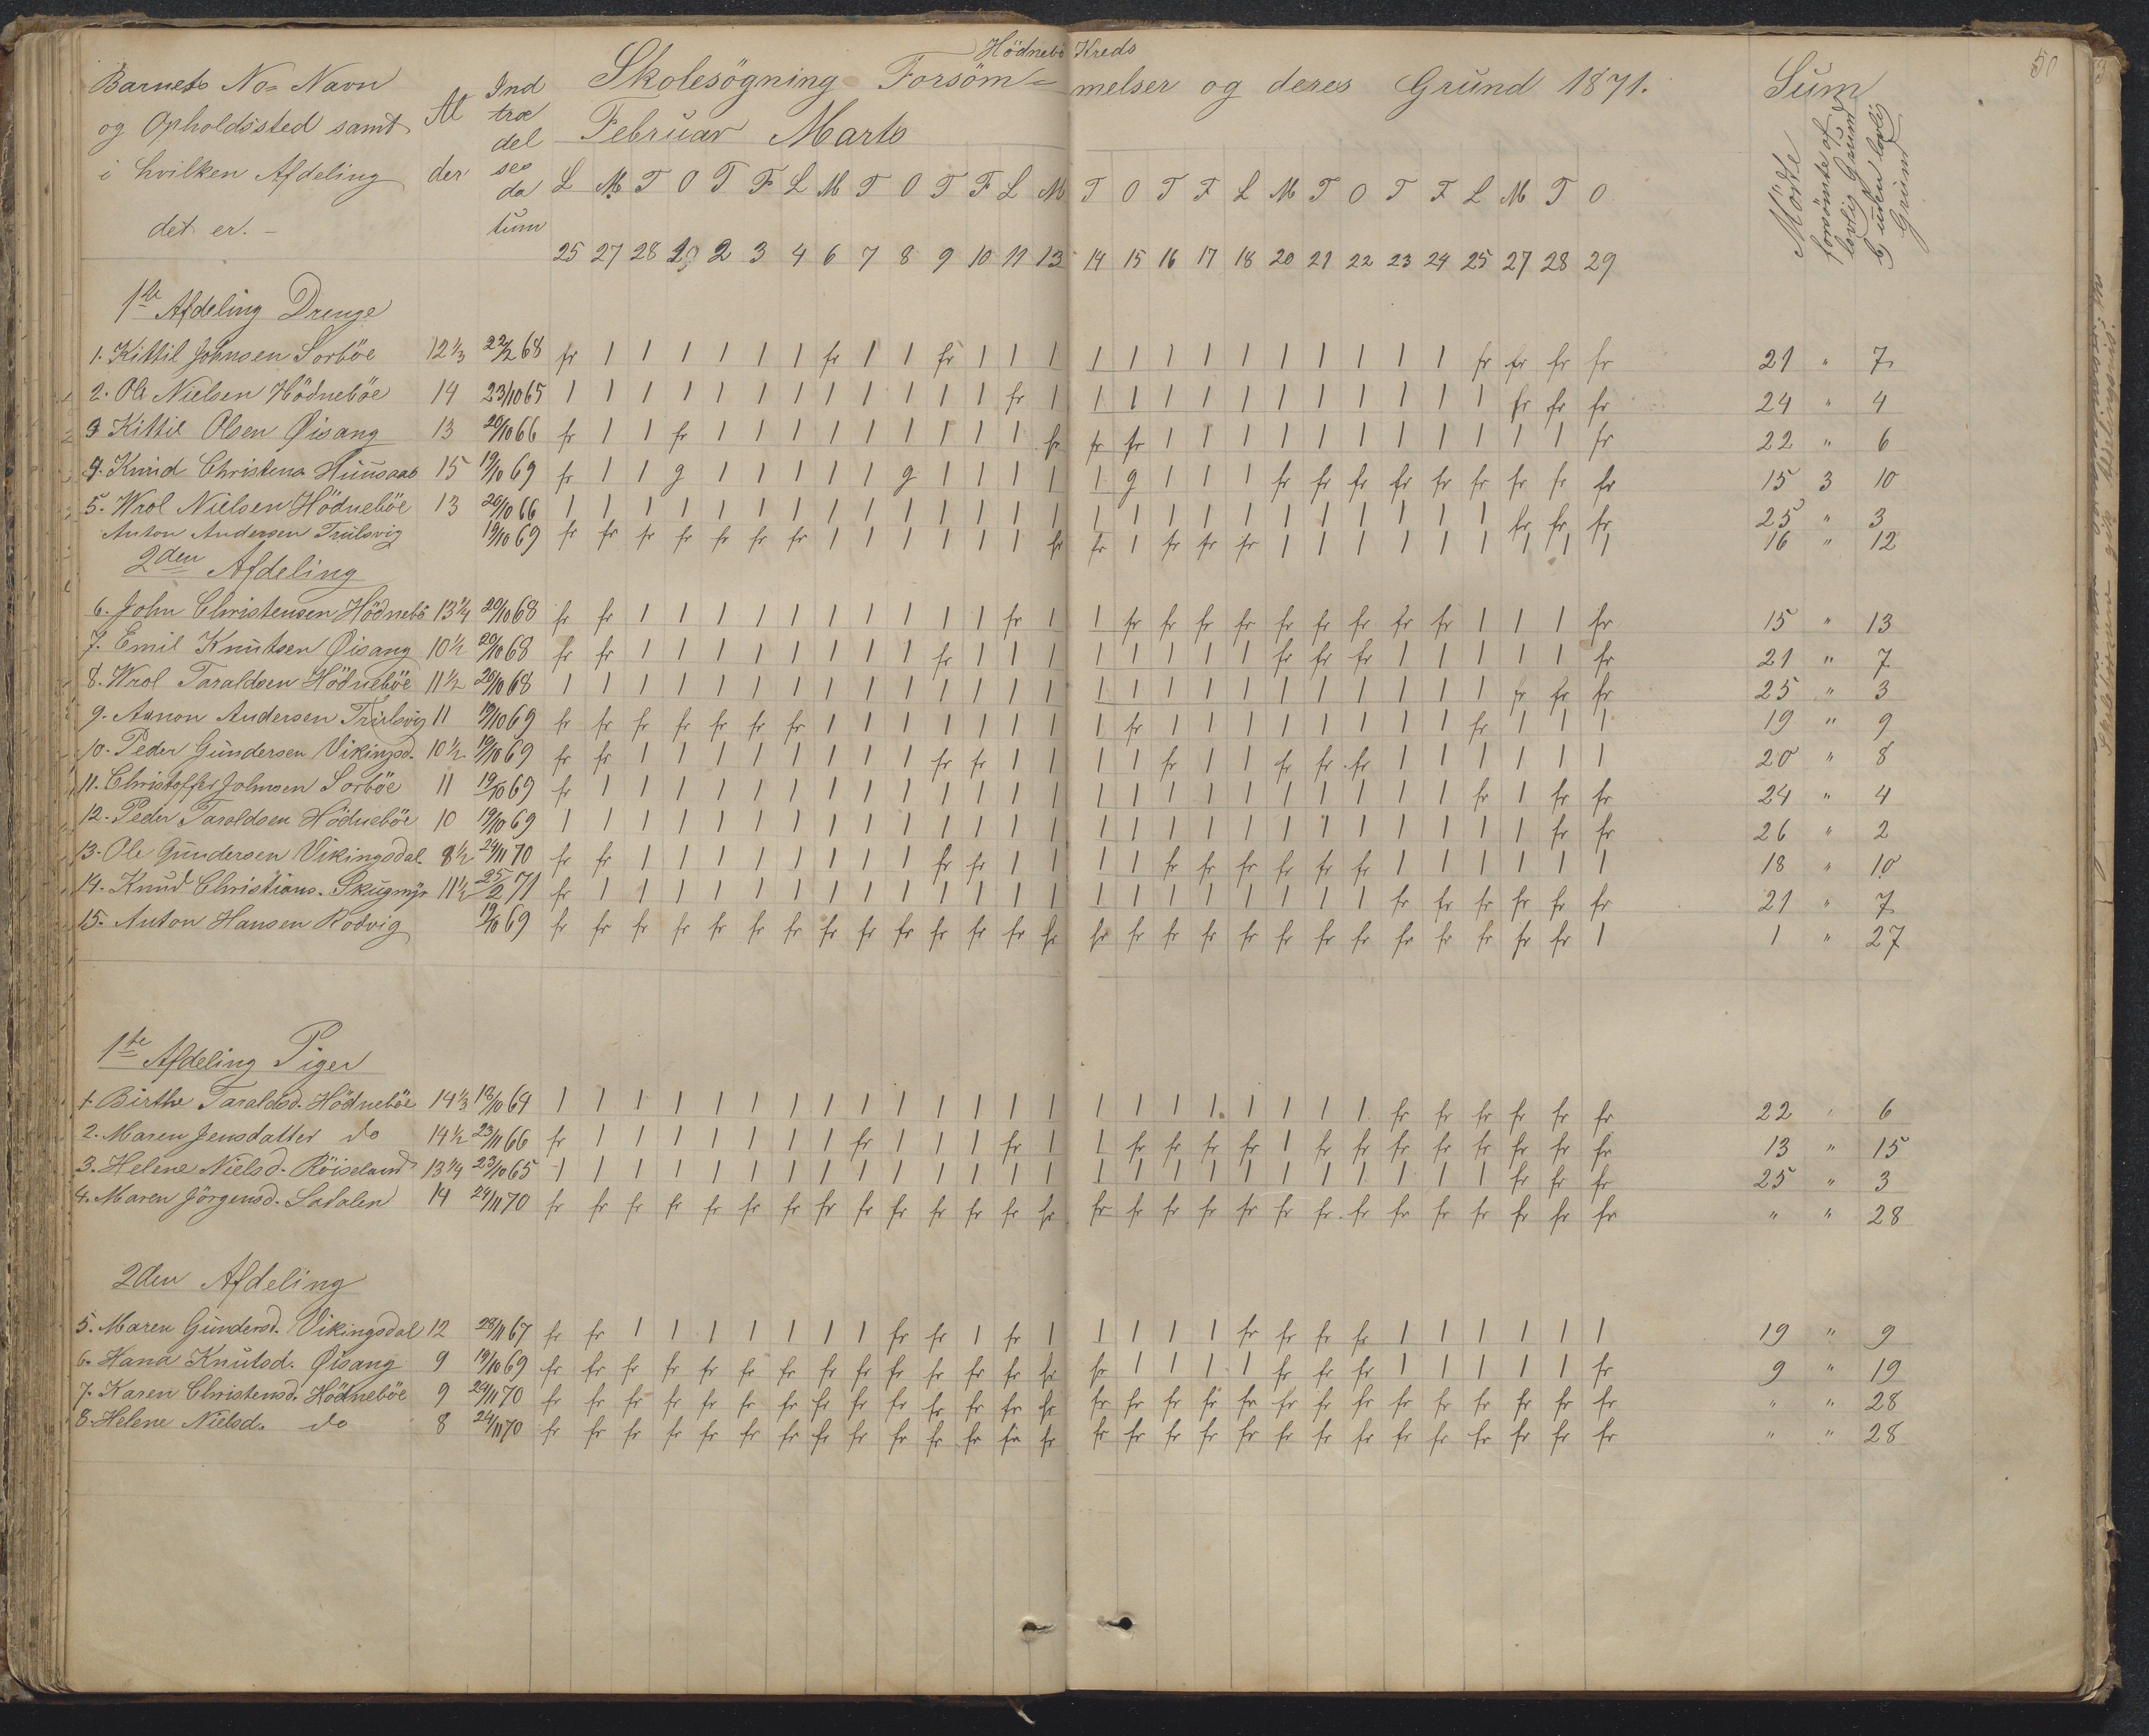 Hödnebö Kreds
50
Barnets No= Navn og Opholdssted samt i hvilken Afdeling det er. -
Al der
Ind træ del ses da tum
Skolesögning Forsöm= melser og deres Grund 1871.
Sum
Februar Marts
Mödte
forsömte af lovlig Grund
b) uden lovlig Grund
L M T O T F L M T O T F L M T O T F L M T O T F L M T O
25 27 28 29 2 3 4 6 7 8 9 10 11 13 14 15 16 17 18 20 21 22 23 24 25 27 28 29
1ste Afdeling Drenge
1. Kittil Johnsen Sorböe 12 1/3 22/2 68 fr 1 1 1 1 1 1 fr 1 1 fr 1 1 1 1 1 1 1 1 1 1 1 1 1 fr fr fr fr 21 " 7
2. Ole Nielsen Hödneböe 14 23/10 65 1 1 1 1 1 1 1 1 1 1 1 1 fr 1 1 1 1 1 1 1 1 1 1 1 1 fr fr fr 24 " 4
3 Kittil Olsen Öisang 13 20/10 66 fr 1 1 fr 1 1 1 1 1 1 1 1 1 fr fr fr 1 1 1 1 1 1 1 1 1 1 1 fr 22 " 6
4. Knud Christens. Huusaas 15 19/10 69 fr 1 1 g 1 1 1 1 1 g 1 1 1 1 1 g 1 1 1 fr fr fr fr fr fr fr fr fr 15 3 10
5. Wrol Nielsen Hödneböe 13 20/10 66 1 1 1 1 1 1 1 1 1 1 1 1 1 1 1 1 1 1 1 1 1 1 1 1 1 fr fr fr 25 " 3
Anton Andersen Trülsvig 19/10 69 fr fr fr fr fr fr fr 1 1 1 1 1 1 fr fr 1 fr fr fr 1 1 1 1 1 1 1 1 1 16 " 12
2den Afdeling
6. John Christensen Hödnebö 13 1/4 20/10 68 fr fr 1 1 1 1 1 1 1 1 1 1 fr 1 1 fr fr fr fr fr fr fr fr fr 1 1 1 fr 15 " 13
7. Emil Knutsen Öisang 10 1/2 20/10 68 fr fr 1 1 1 1 1 1 1 1 fr 1 1 1 1 1 1 1 1 fr fr fr 1 1 1 1 1 fr 21 " 7
8. Wrol Taraldsen Hödneböe 11 1/2 20/10 68 1 1 1 1 1 1 1 1 1 1 1 1 1 1 1 1 1 1 1 1 1 1 1 1 1 fr fr fr 25 " 3
9. Aanon Andersen Trülsvig 11 19/10 69 fr fr fr fr fr fr fr 1 1 1 1 1 1 1 1 fr 1 1 1 1 1 1 1 1 fr 1 1 1 19 " 9
10. Peder Gundersen Vikingsd. 10 1/2 19/10 69 fr fr 1 1 1 1 1 1 1 1 fr fr 1 1 1 1 fr 1 1 fr fr fr 1 1 1 1 1 1 20 " 8
11. Christoffer Johnsen Sorböe 11 19/10 69 fr 1 1 1 1 1 1 1 1 1 1 1 1 1 1 1 1 1 1 1 1 1 1 1 fr 1 fr fr 24 " 4
12. Peder Taraldsen Hödneböe 10 19/10 69 1 1 1 1 1 1 1 1 1 1 1 1 1 1 1 1 1 1 1 1 1 1 1 1 1 1 fr fr 26 " 2
13. Ole Gundersen Vikingsdal 8 1/2 24/11 70 fr fr 1 1 1 1 1 1 1 1 fr fr 1 1 1 1 fr fr fr fr fr fr 1 1 1 1 1 1 18 " 10
14. Knud Christians. Skugmyr 11 1/2 25/2 71 fr 1 1 1 1 1 1 1 1 1 1 1 1 1 1 1 1 1 1 1 1 1 fr fr fr fr fr fr 21 " 7
15. Anton Hansen Rodvig 19/10 69 fr fr fr fr fr fr fr fr fr fr fr fr fr fr fr fr fr fr fr fr fr fr fr fr fr fr fr 1 1 " 27
1ste Afdeling Piger
1. Birthe Taraldsd. Hödneböe 14 1/3 18/10 64 1 1 1 1 1 1 1 1 1 1 1 1 1 1 1 1 1 1 1 1 1 1 fr fr fr fr fr fr 22 " 6
2. Maren Jensdatter do 14 1/2 23/11 66 fr 1 1 1 1 1 1 1 fr 1 1 1 fr 1 1 fr fr fr fr 1 fr fr fr fr fr fr fr fr 13 " 15
3. Helene Nielsd. Röiseland 13 1/4 23/10 65 1 1 1 1 1 1 1 1 1 1 1 1 1 1 1 1 1 1 1 1 1 1 1 1 1 fr fr fr 25 " 3
4. Maren Jörgensd. Ladalen 14 24/11 70 fr fr fr fr fr fr fr fr fr fr fr fr fr fr fr fr fr fr fr fr fr fr fr fr fr fr fr fr " " 28
2den Afdeling
5. Maren Gundersd. Vikingsdal 12 28/11 67 fr fr 1 1 1 1 1 1 1 fr fr 1 fr 1 1 1 1 1 fr fr fr fr 1 1 1 1 1 1 19 " 9
6. Hana Knutsd. Öisang 9 19/10 69 fr fr fr fr fr fr fr fr fr fr fr fr fr fr fr 1 1 1 1 fr fr fr 1 1 1 1 1 fr 9 " 19
7. Karen Christensd. Hödneböe 9 24/11 70 fr fr fr fr fr fr fr fr fr fr fr fr fr fr fr fr fr fr fr fr fr fr fr fr fr fr fr fr " " 28
8. Helene Nielsd. do 8 24/11 70 fr fr fr fr fr fr fr fr fr fr fr fr fr fr fr fr fr fr fr fr fr fr fr fr fr fr fr fr " " 28